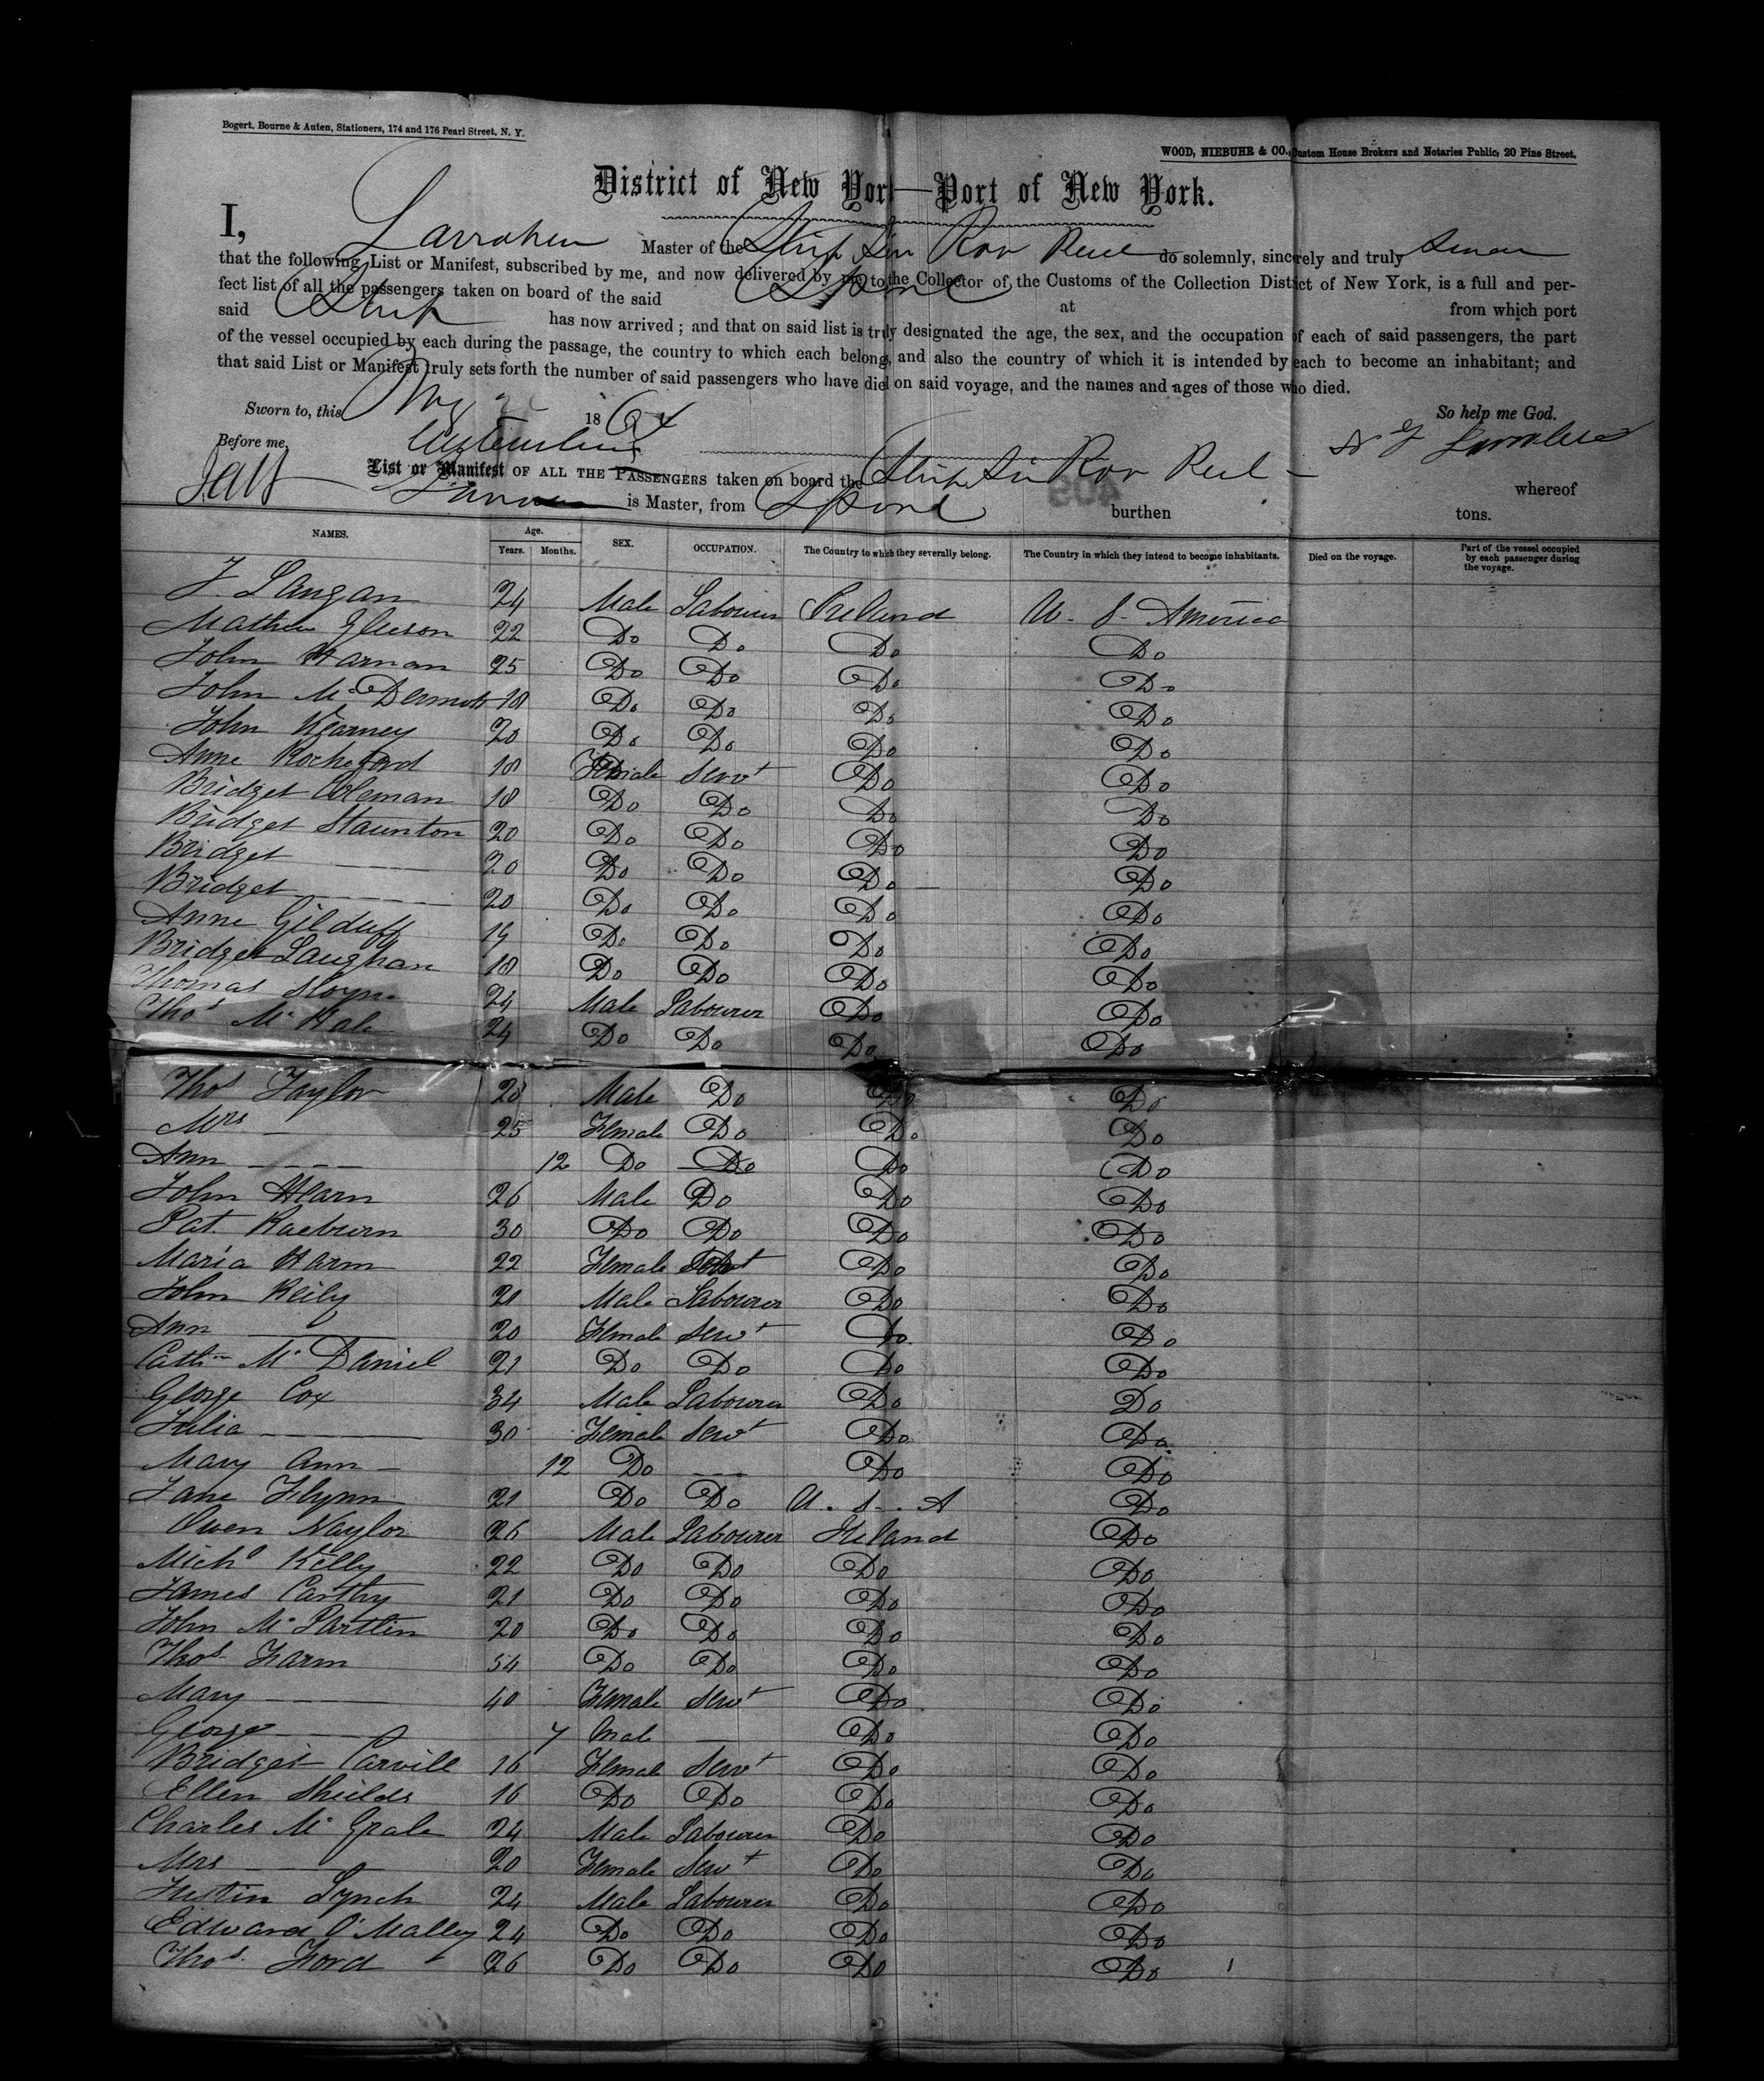 Bogert, Bourne & Auten, Stationers, 174 and 176 Pearl Street, N. Y.
WOOD, NIEBUHR & CO., Custom House Brokers and Notaries Public, 20 Pine Street.
District of New York—Port of New York.
I, Master of the Ship do solemnly, sincerely and truly swear
that the following List or Manifest, subscribed by me, and now delivered by me to the Collector of the Customs of the Collection District of New York, is a full and per-
fect list of all the passengers taken on board of the said at from which port
said Ship has now arrived; and that on said list is truly designated the age, the sex, and the occupation of each of said passengers, the part
of the vessel occupied by each during the passage, the country to which each belong, and also the country of which it is intended by each to become an inhabitant; and
that said List or Manifest truly sets forth the number of said passengers who have died on said voyage, and the names and ages of those who died.
Sworn to, this 1864 So help me God.
Before me,
List or Manifest OF ALL THE PASSENGERS taken on board the Ship whereof
is Master, from Lpool burthen tons.
NAMES. Age. Years. Months. SEX. OCCUPATION. The Country to which they severally belong. The Country in which they intend to become inhabitants. Died on the voyage. Part of the vessel occupied by each passenger during the voyage.
J. Langan 24 Male Labourer Ireland U. S. America
Mathew Gleeson 22 Do Do Do Do
John Harnan 25 Do Do Do Do
John McDermott 18 Do Do Do Do
John Kearney 20 Do Do Do Do
Anne Rocheford 18 Female Servt Do Do
Bridget Coleman 18 Do Do Do Do
Bridget Staunton 20 Do Do Do Do
Bridget — 20 Do Do Do Do
Bridget — 20 Do Do Do Do
Anne Gilduff 19 Do Do Do Do
Bridget Laughan 18 Do Do Do Do
Thomas 24 Male Labourer Do Do
Thos McHale 24 Do Do Do Do
Thos Taylor 28 Male Do Do Do
Mrs — 25 Female Do Do Do
Ann — 12 Do Do Do Do
John Hearn 26 Male Do Do Do
Pat. Raeburn 30 Do Do Do Do
Maria Harm 22 Female Servt Do Do
John Reily 21 Male Labourer Do Do
Ann — 20 Female Servt Do Do
Cathn McDaniel 21 Do Do Do Do
George Cox 34 Male Labourer Do Do
Julia — 30 Female Servt Do Do
Mary Ann — 12 Do — Do Do
Jane Flynn 21 Do Do U. S. A Do
Owen Naylor 26 Male Labourer Ireland Do
Michl Kelly 22 Do Do Do Do
James Carthy 21 Do Do Do Do
John McPartlin 20 Do Do Do Do
Thos Farm 54 Do Do Do Do
Mary — 40 Female Servt Do Do
George — 7 Male — Do Do
Bridget Carvill 16 Female Servt Do Do
Ellen Shields 16 Do Do Do Do
Charles McGrale 24 Male Labourer Do Do
Mrs — 20 Female Servt Do Do
Justin Lynch 24 Male Labourer Do Do
Edward O'Malley 24 Do Do Do Do
Thos Ford 26 Do Do Do Do